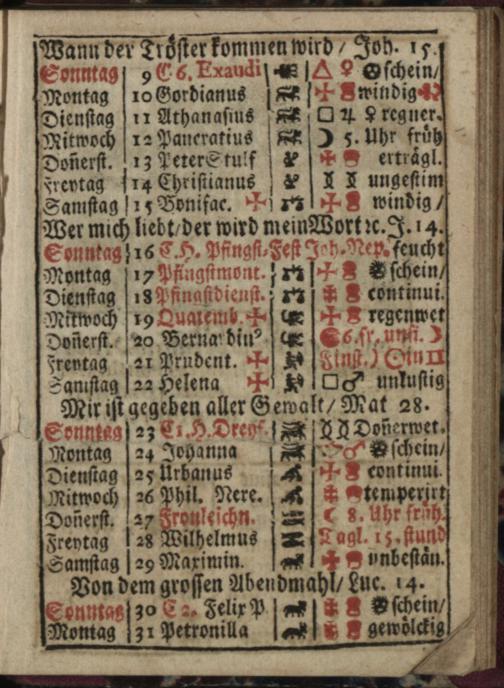 Wann der Tröster kommen wird / Joh. 15.
Sonntag 9 C 6. Exaudi △ ♀ schein/
Montag 10 Gordianus windig
Dienstag 11 Athanasius □ ♃ ♀ regner.
Mitwoch 12 Pancratius ☽ 5. Uhr früh
Donerst. 13 Peter Stulf erträgl.
Freytag 14 Christianus ungestim
Samstag 15 Bonifac. ✠ windig /
Wer mich liebt/ der wird mein Wort ꝛc. J. 14.
Sonntag 16 C. H. Pfingst-Fest Joh. Nep. feucht
Montag 17 Pfingstmont. schein/
Dienstag 18 Pfingstdienst. continui.
Mitwoch 19 Quatemb. ✠ regenwet
Donerst. 20 Bernardin⁹ 6. fr. unsi. ☽
Freytag 21 Prudent. ✠ Finst.) ☉ in ♊
Samstag 22 Helena ✠ □ ♂ unlustig
Mir ist gegeben aller Gewalt / Mat 28.
Sonntag 23 C 1. H. Dreyf. Donerwet.
Montag 24 Johanna ♂ schein/
Dienstag 25 Urbanus continui.
Mitwoch 26 Phil. Nere. temperirt
Donerst. 27 Fronleichn. ☾ 8. Uhr früh.
Freytag 28 Wilhelmus Tagl. 15. stund
Samstag 29 Maximin. unbestän.
Von dem grossen Abendmahl / Luc. 14.
Sonntag 30 C 2. Felix P. schein/
Montag 31 Petronilla gewölckig